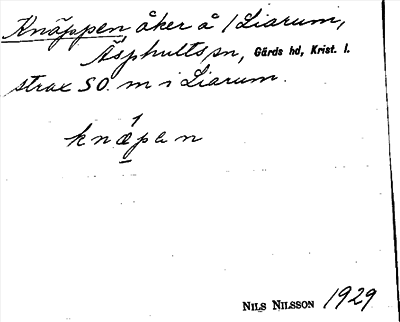 Knäppen åker å 1 Liarum,
Äsphults sn, Gärds hd, Krist. l.
strax SO. m i Liarum.
knæpan
NILS NILSSON 1929